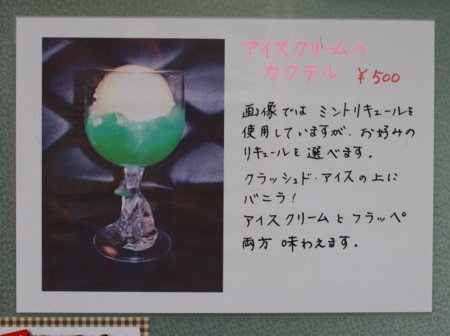 アイスクリームの
カクテル ¥500
画像では ミントリキュールを
使用していますが、お好みの
リキュールを 選べます。
クラッシュド・アイスの上に
バニラ！
アイスクリームとフラッペ
両方 味わえます。